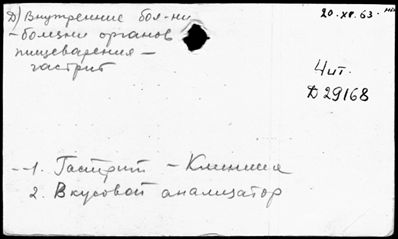 Д) Внутренние бол-ни
20.XII.63.
- болезни органов
пищеварения -
гастрит
Чит.
Д 29168
- 1. Гастрит - Клиника
2. Вкусовой анализатор